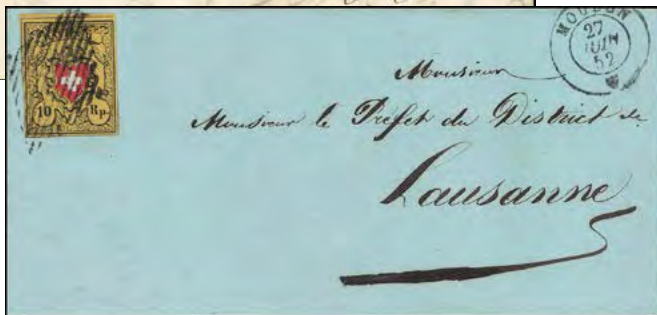 10 Rp.
MOUDON
27
JUIN
52
Monsieur
Monsieur le Préfet du District de
Lausanne